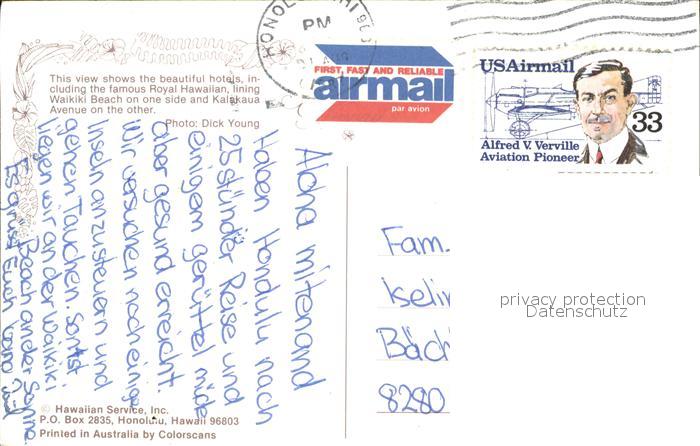 HONOLULU, HI 968
PM
This view shows the beautiful hotels, in-
cluding the famous Royal Hawaiian, lining
Waikiki Beach on one side and Kalakaua
Avenue on the other.
Photo: Dick Young
FIRST, FAST AND RELIABLE
airmail
par avion
USAirmail
33
Alfred V. Verville
Aviation Pioneer
Aloha mitenand
Haben Honolulu nach
25 stündier Reise und
einigem gerüttel müde
aber gesund erreicht.
Wir versuchen nach einige
Inseln anzusteuern und
gehen Tauchen. Sonst
liegen wir an der Waikiki
Beach an der Sonne.
Es grüsst Euch
Fam.
Iselin
Bäch
8280
privacy protection
Datenschutz
© Hawaiian Service, Inc.
P.O. Box 2835, Honolulu, Hawaii 96803
Printed in Australia by Colorscans